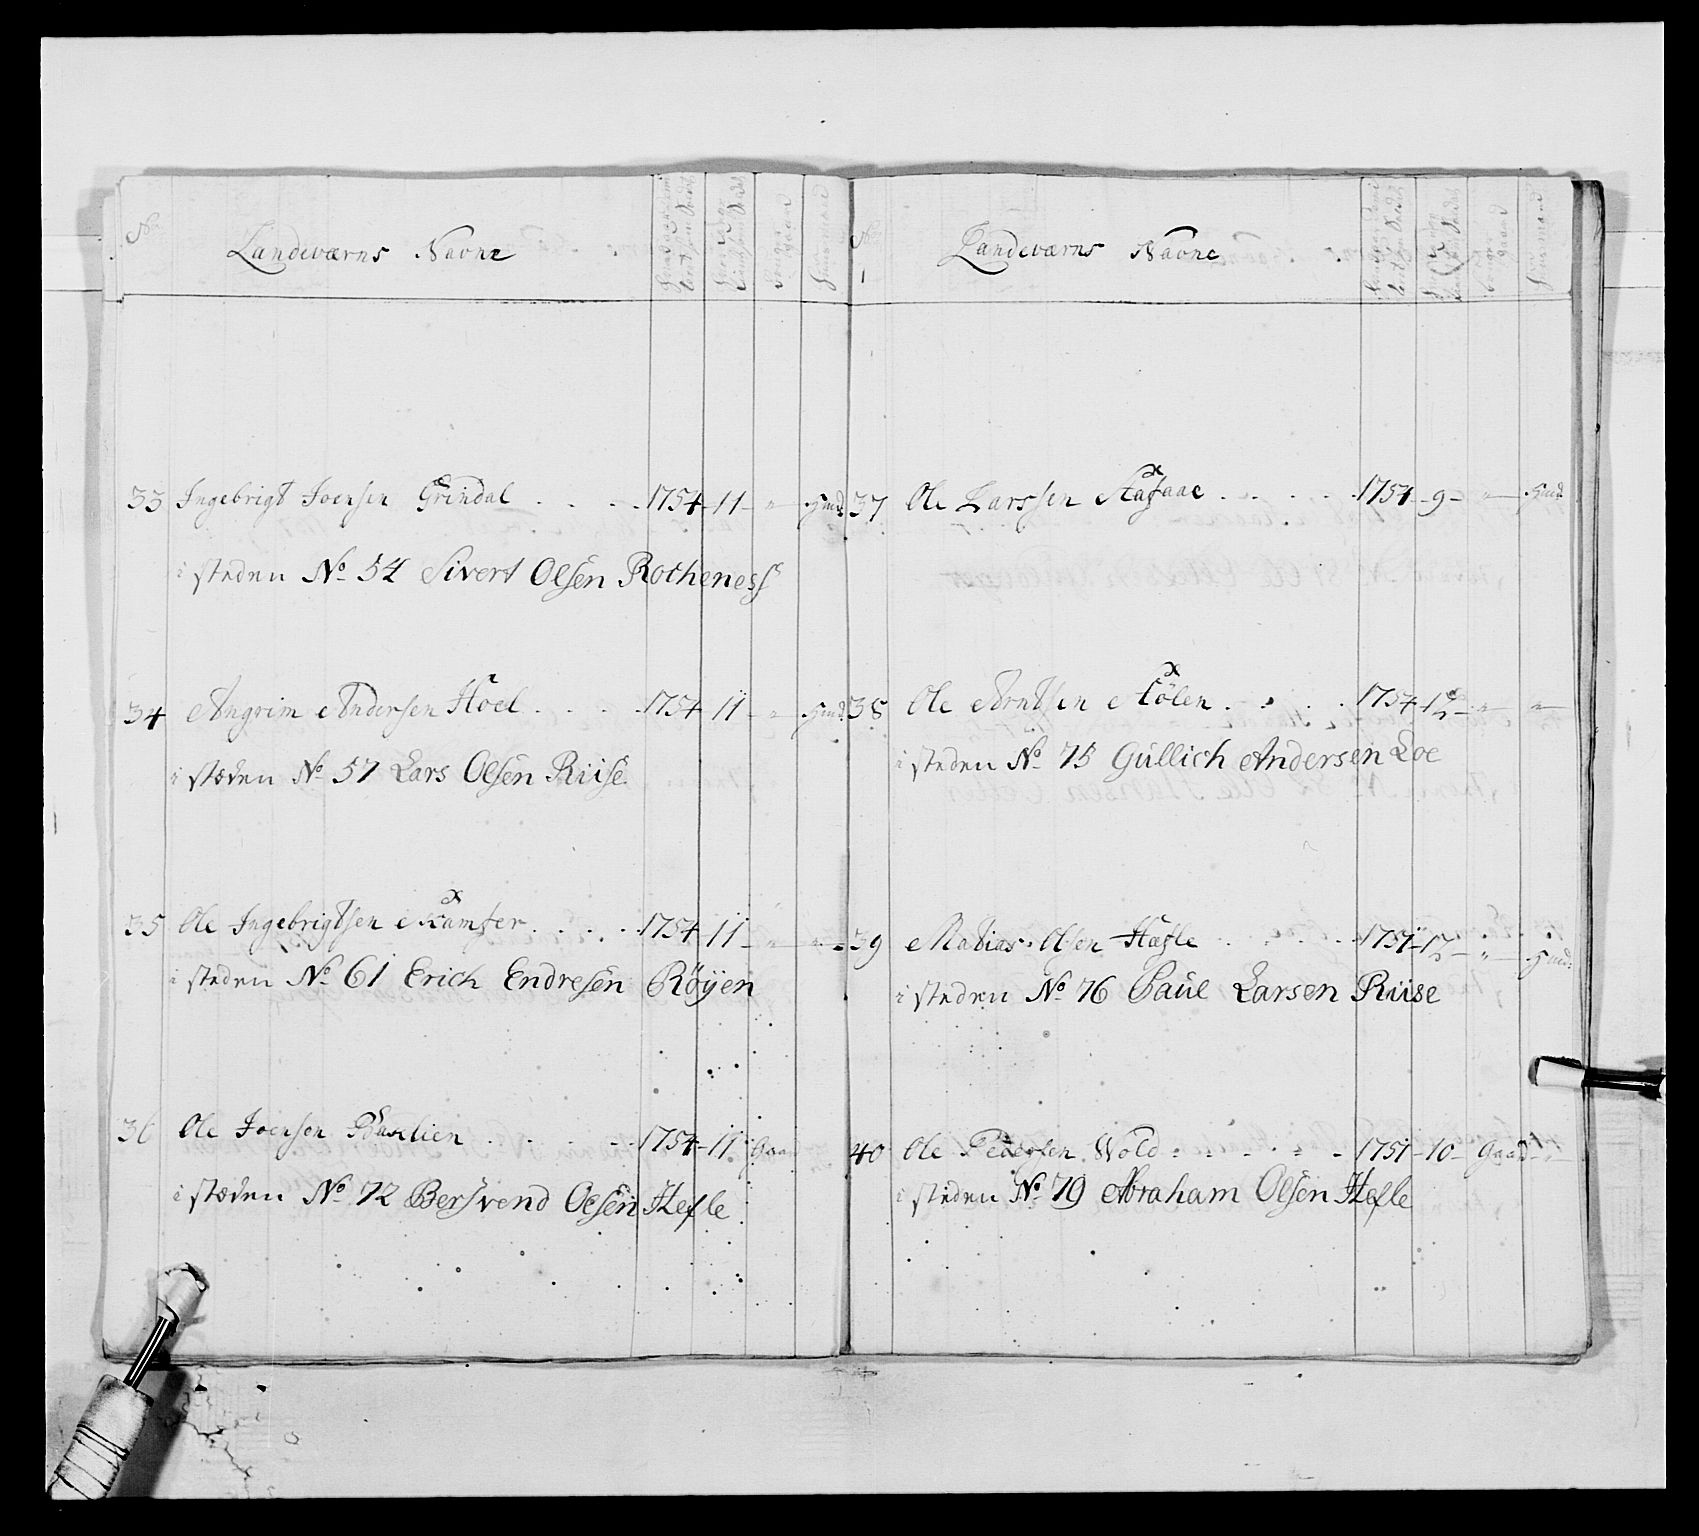 No
Landeværns Navne
33 Ingebrigt Joensen Grindal . . . . 1754 - 11 - " - Huusd
i steden No 54 Sivert Olsen Rotheness
34 Angrim Andersen Hoel . . . . 1754 - 11 - " - Huusd
i stæden No 57 Lars Olsen Riise
35 Ole Ingebrigtsen Kamfer . . . . 1754 - 11 - " - " -
i steden No 61 Erich Endresen Røÿen
36 Ole Joensen . . . . 1754 - 11 Gaard
i stæden No 72 Bersvend Olsen Hefle
No
Landeværns Navne
37 Ole Larssen Aafaae . . . . 1754 - 9 - " - Huusd
38 Ole Arntsen . . . . 1754 - 12 - " - " -
i steden No 75 Gullich Andersen Loe
39 Matias Olsen Hæfle . . . . 1751 - 12 - " - Huusd:
i steden No 76 Paul Larsen Riise
40 Ole Pedersen Wold . . . . 1751 - 10 - Gaard -
i steden No 79 Abraham Olsen Hefle